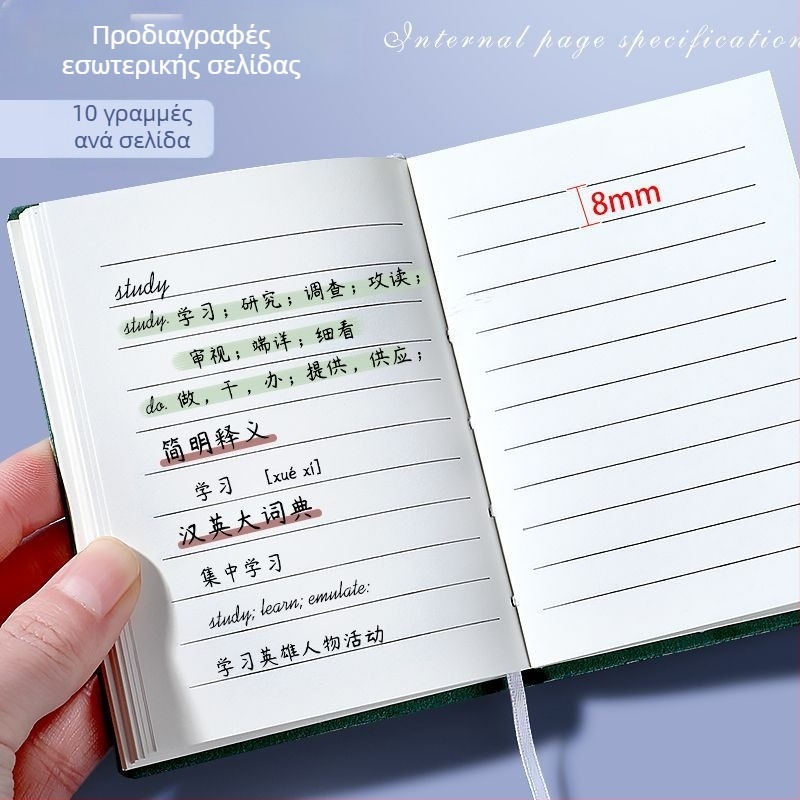 Προδιαγραφές
εσωτερικής σελίδας
Internal page specification
10 γραμμές
ανά σελίδα
8mm
study
study. 学习；研究；调查；攻读；
审视；端详；细看
do. 做，干，办；提供，供应；
简明释义
学习 [xué xí]
汉英大词典
集中学习
study; learn; emulate:
学习英雄人物活动